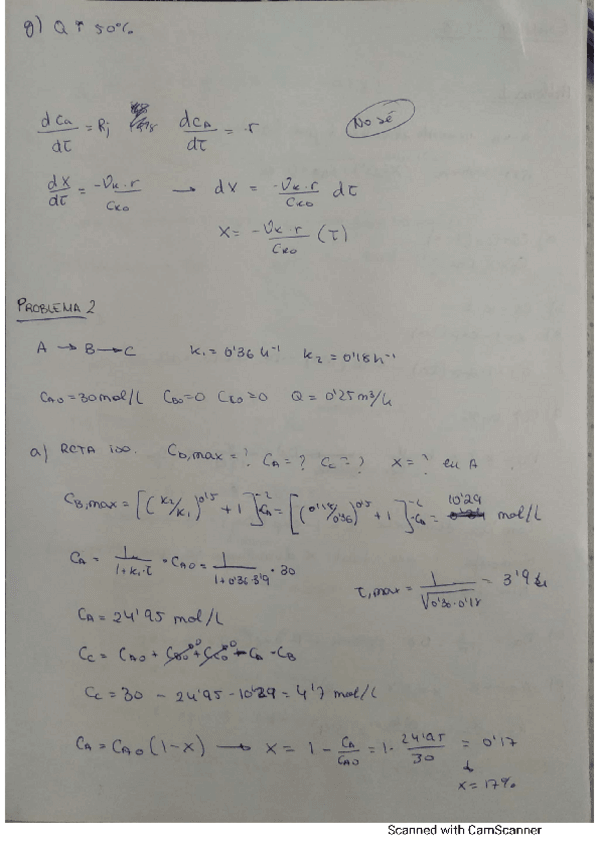 g) Q ↑ 50%
dCa/dτ = Rj dCA/dτ = -r No sé
dX/dτ = -νk·r/Cko → dX = -νk·r/Cko dτ
X = -νk·r/Cko (τ)
PROBLEMA 2
A → B → C K1 = 0'36 h⁻¹ K2 = 0'18 h⁻¹
CAO = 30 mol/L CBO = 0 CCO = 0 Q = 0'25 m³/h
a) RCTA ideal. CB,max = ? CA = ? CC = ? X = ? en A
CB,max = [(K2/K1)^0'5 + 1]^-2 · CA = [(0'18/0'36)^0'5 + 1]^-2 · CA = 10'29 mol/L
CA = 1/(1+K1·τ) · CAO = 1/(1+0'36·3'9) · 30
τ,max = 1/√(0'36·0'18) = 3'9 h
CA = 24'95 mol/L
CC = CAO + CBO + CCO - CA - CB
CC = 30 - 24'95 - 10'29 = 4'7 mol/L
CA = CAO (1-X) → X = 1 - CA/CAO = 1 · 24'95/30 = 0'17
↓
X = 17%
Scanned with CamScanner